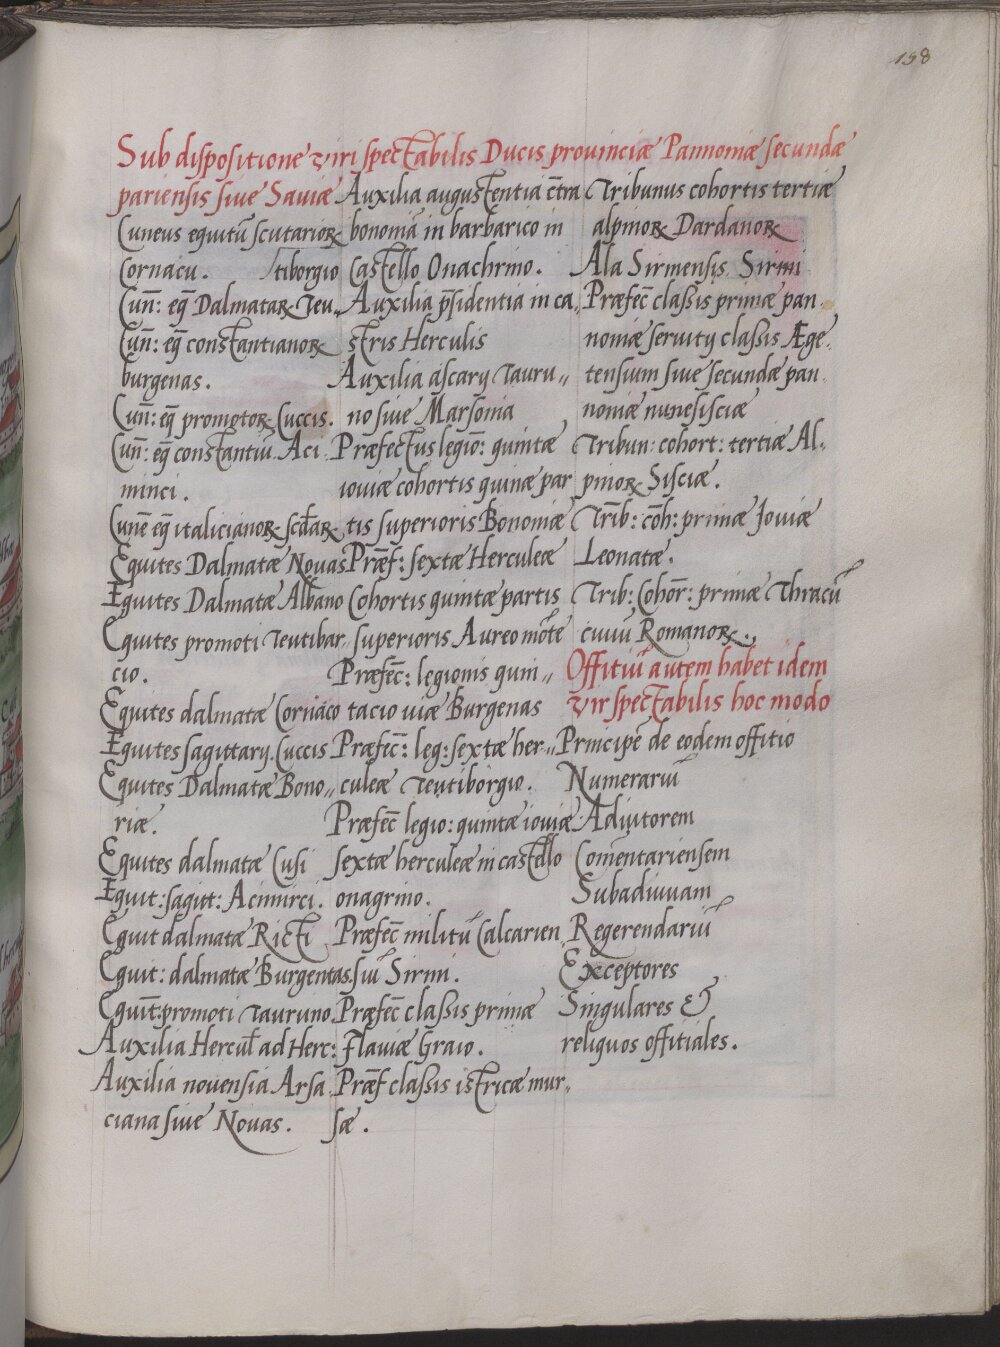 158
Sub dispositione viri spectabilis Ducis provinciæ Pannoniæ secundæ
pariensis sive Saviæ
Cuneus equitũ scutarioꝝ
Cornacu. tiborgio
Cuñ: eq̃ Dalmataꝝ Teu
Cuñ: eq̃ constantianoꝝ
burgenas.
Cuñ: eq̃ promotoꝝ Cuccis.
Cuñ: eq̃ constantiũ Aci
minci.
Cunẽ eq̃ italicianoꝝ
Equites Dalmatæ Novas
Equites Dalmatæ Albano
Equites promoti Teutibar
cio.
Equites dalmatæ Cornaco
Equites sagittarij Cuccis
Equites Dalmatæ Bono„
riæ.
Equites dalmatæ Cusi
Equit: sagitt: Acimirci.
Equit dalmatæ Ricti
Equit: dalmatæ Burgentas.
Equit̃: promoti Tauruno.
Auxilia Hercul̃ ad Herc:
Auxilia novensia Arsa
ciana sive Novas.
Auxilia augustentia c̃tra
bonomiã in barbarico in
Castello Onachrino.
Auxilia p̃sidentia in ca„
stris Herculis
Auxilia ascarij Tauru„
no sive Marsonia
Præfectus legioñ: quintæ
ioviæ cohortis quinæ par
tis superioris Bononiæ
Præf̃: sextæ Herculeæ
Cohortis quintæ partis
superioris Aureo mõte
Præfec̃: legionis quin„
tacio viæ Burgenas
Præfec̃: leg: sextæ her„
culeæ Teutiborgio.
Præfec̃ legio: quintæ ioviæ
sextæ herculeæ in castello
onagrino.
Præfec̃ militũ Calcarien
siũ Sirmi.
Præfec̃ classis primæ
Flaviæ Graio.
Præf̃ classis istricæ mur„
sæ.
Tribunus cohortis tertiæ
alpinoꝝ Dardanoꝝ
Ala Sirmensis Sirmi
Præfec̃ classis primæ pan
noniæ servitij classis Æge
tensium sive secundæ pan
noniæ nunc sisciæ
Tribun: cohort: tertiæ Al
pinoꝝ Sisciæ.
Trĩb: cõh: primæ Ioviæ
Leonatæ.
Trib: Cohor̃: primæ Thracũ
civiũ Romanoꝝ.
Offitiũ autem habet idem
vir spectabilis hoc modo
Principẽ de eodem offitio
Numerariũ
Adiutorem
Comentariensem
Subadiuvam
Regerendariũ
Exceptores
Singulares &
reliquos offitiales.